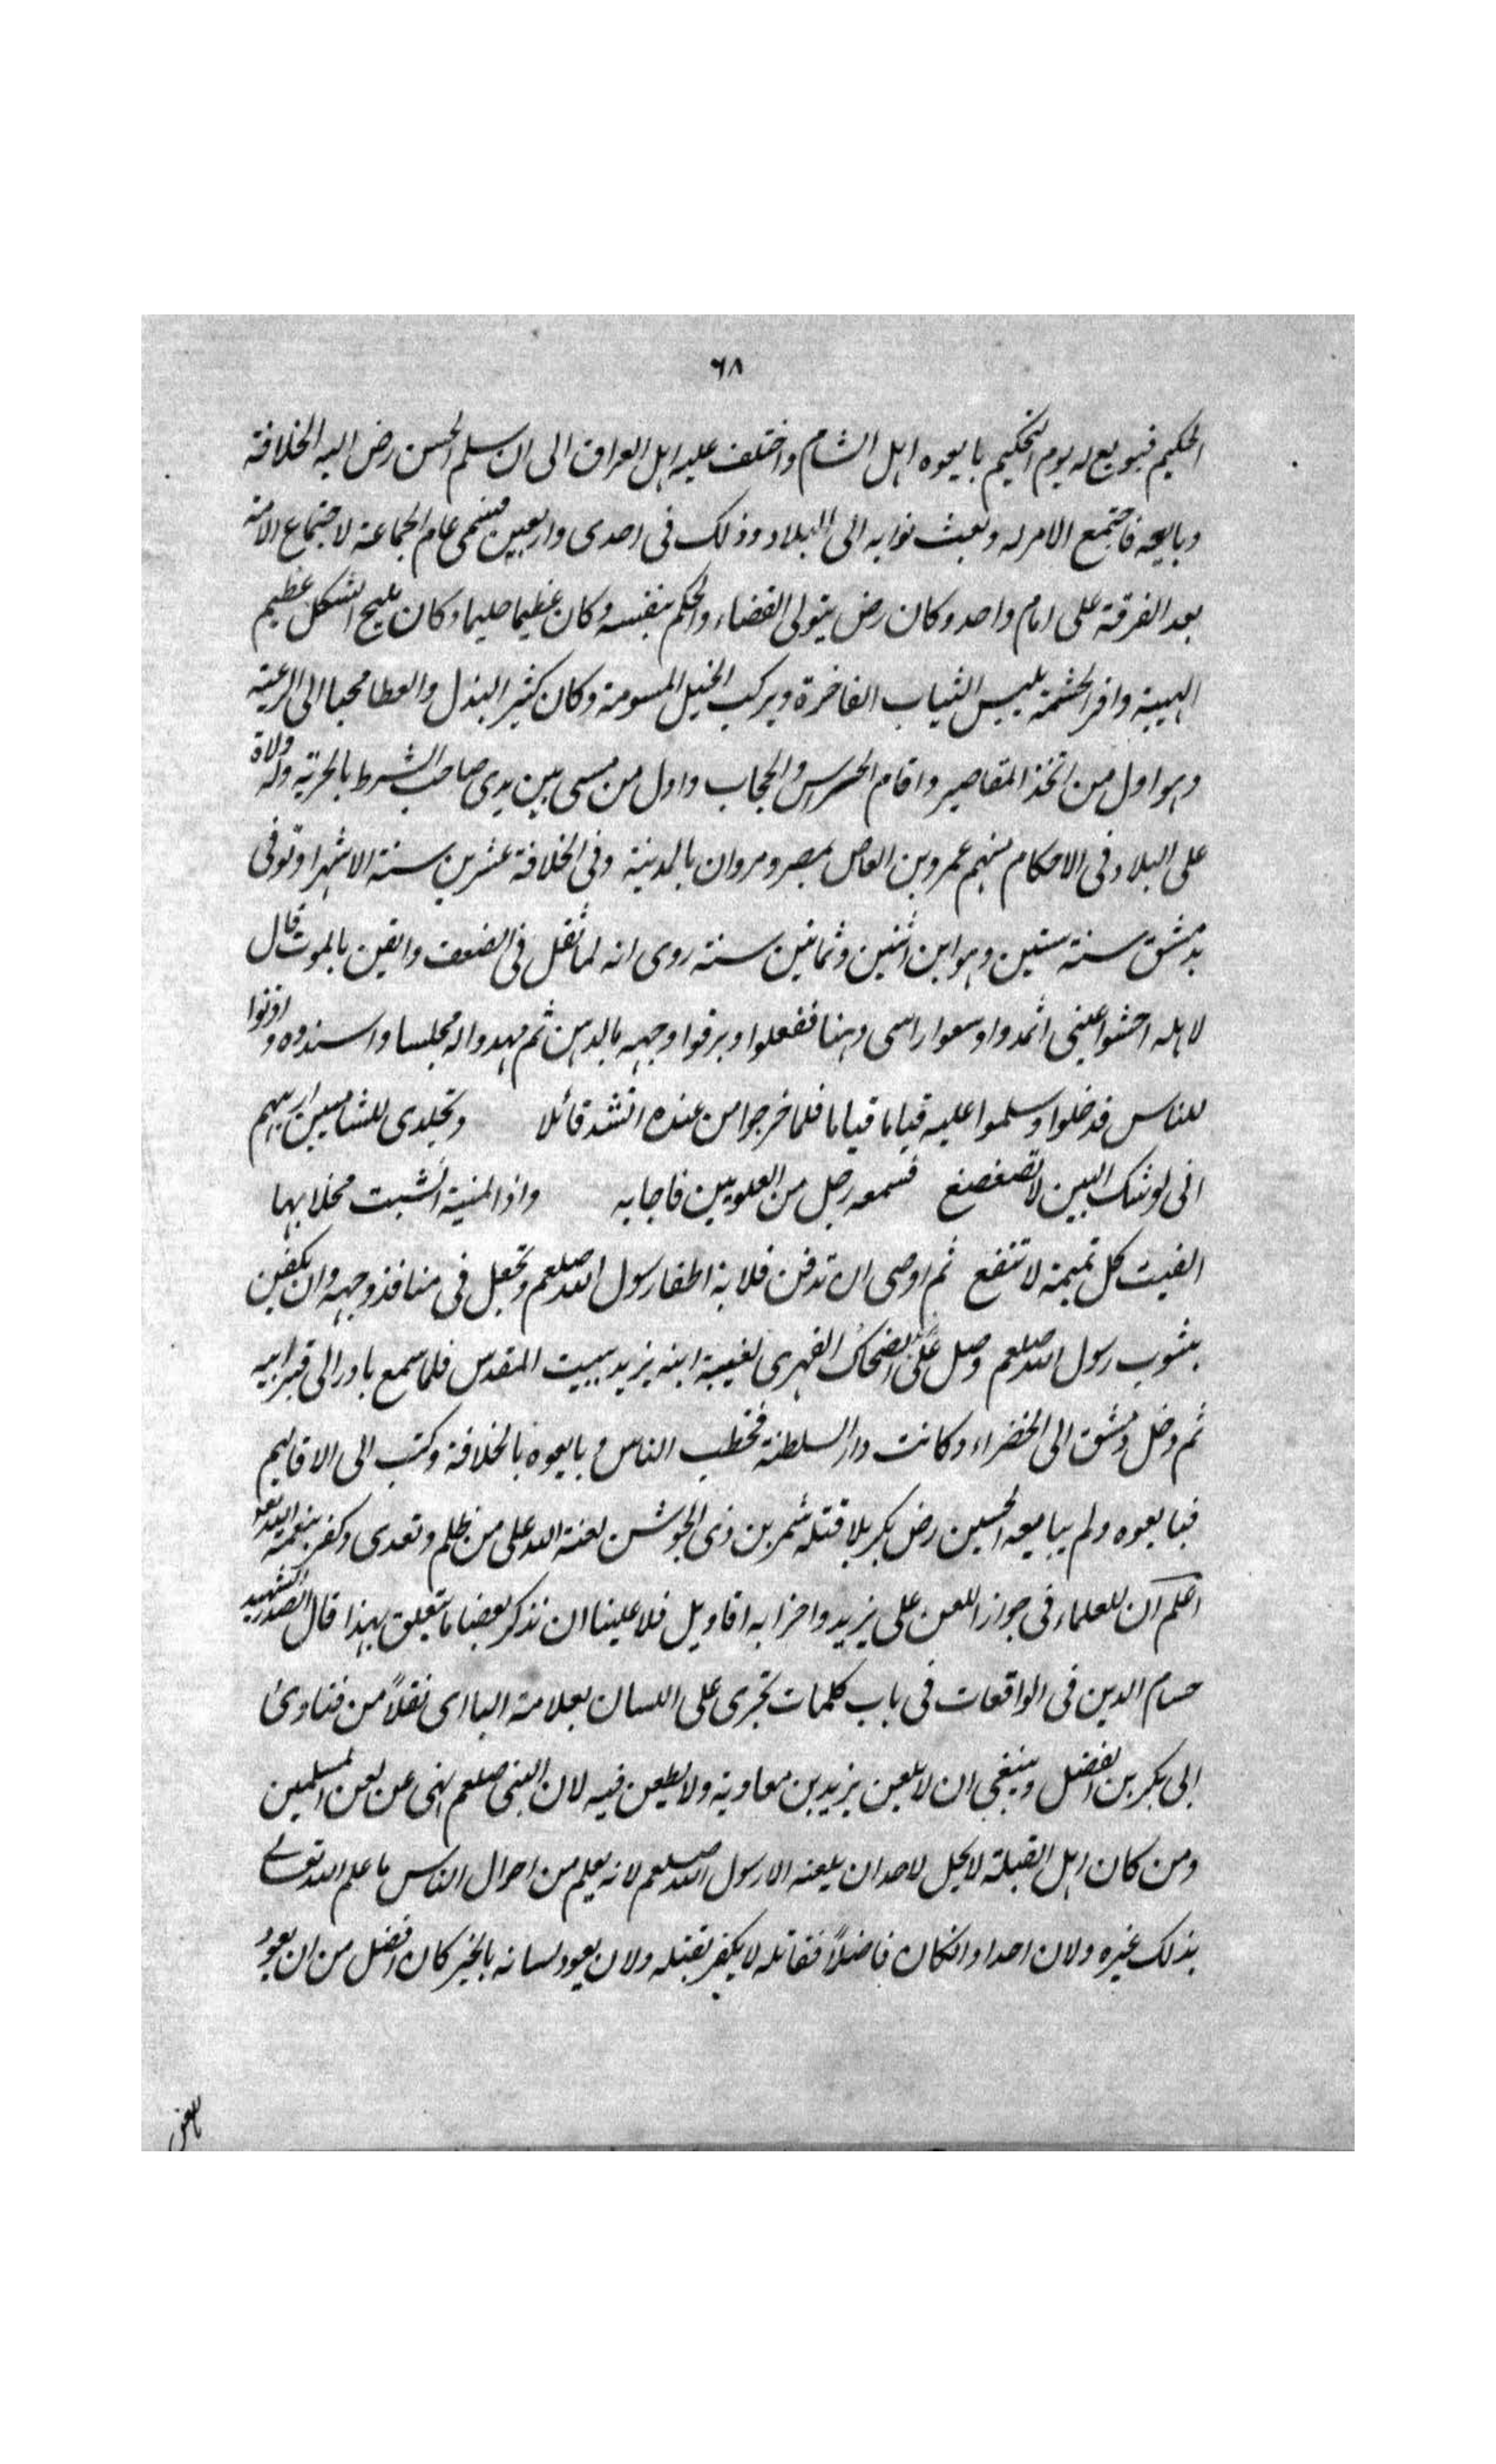 ٦٨
الحكيم فبويع له يوم التحكيم بايعوه اهل الشام واختلف عليه اهل العراق الى ان سلم الحسن رض اليه الخلافة
وبايعه فاجتمع الامر له وبعث نوابه الى البلاد وذلك فى احدى واربعين فسمى عام الجماعة لاجتماع الامة
بعد الفرقة على امام واحد وكان رض يتولى القضاء والحكم بنفسه وكان عظيما حليما وكان مليح الشكل عظيم
الهيبة وافر الحشمة يلبس الثياب الفاخرة ويركب الخيل المسومة وكان كثير البذل والعطا محبا الى الرعية
وهو اول من اتخذ المقاصير واقام الحرس والحجاب واول من مسى بين يدى صاحب الشرط بالحربة وله ولاة
على البلاد فى الاحكام منهم عمرو بن العاص بمصر ومروان بالمدينة وفى الخلافة عشرين سنة الا شهرا وتوفى
بدمشق سنة ستين وهو ابن اثنين وثمانين سنة روى انه لما ثقل فى الضعف وايقن بالموت قال
لاهله احشوا عينى اثمد واوسعوا راسى دهنا ففعلوا وبرقوا وجهه بالدهن ثم مهدوا له مجلسا واسندوه واذنوا
للناس فدخلوا وسلموا عليه قياما قياما فلما خرجوا من عنده انشد قائلا وتجلدى للشامتين اريهم
انى لوشك البين لا تضعضع فسمعه رجل من العلويين فاجابه واذا المنية انشبت مخلابها
الفيت كل تميمة لا تنفع ثم اوصى ان تدفن قلابة اظفار رسول الله صلعم وتجعل فى منافذ وجهه وان يكفن
بثوب رسول الله صلعم وصل على الضحاك الفهرى لغيبة ابنه يزيد ببيت المقدس فلما سمع بادر الى قبر ابيه
ثم دخل دمشق الى الخضراء وكانت دار السلطنة فخطب الناس وبايعوه بالخلافة وكتب الى الاقاليم
فبايعوه ولم يبايعه الحسين رض بكربلا قتله شمر بن ذى الجوشن لعنة الله على من ظلم وتعدى وكفر بنعمة الله تعا
اعلم ان للعلماء فى جواز اللعن على يزيد واحزابه اقاويل فلا علينا ان نذكر بعضا ما يتعلق بهذا قال الصدر الشهيد
حسام الدين فى الواقعات فى باب كلمات تجرى على اللسان بعلامة الباء اى نقلاً من فتاوى
ابى بكر بن الفضل وينبغى ان لا يلعن يزيد بن معاوية ولا يطعن فيه لان النبى صلعم نهى عن لعن المسلمين
ومن كان اهل القبلة لا يحل لاحد ان يلعنه الا رسول الله صلعم لانه يعلم من احوال الناس ما علم الله تعالى
بذلك غيره ولان احدا وانكان فاضلاً فقاتله لا يكفر بقتله ولان يعود لسانه بالخير كان افضل من ان يعود